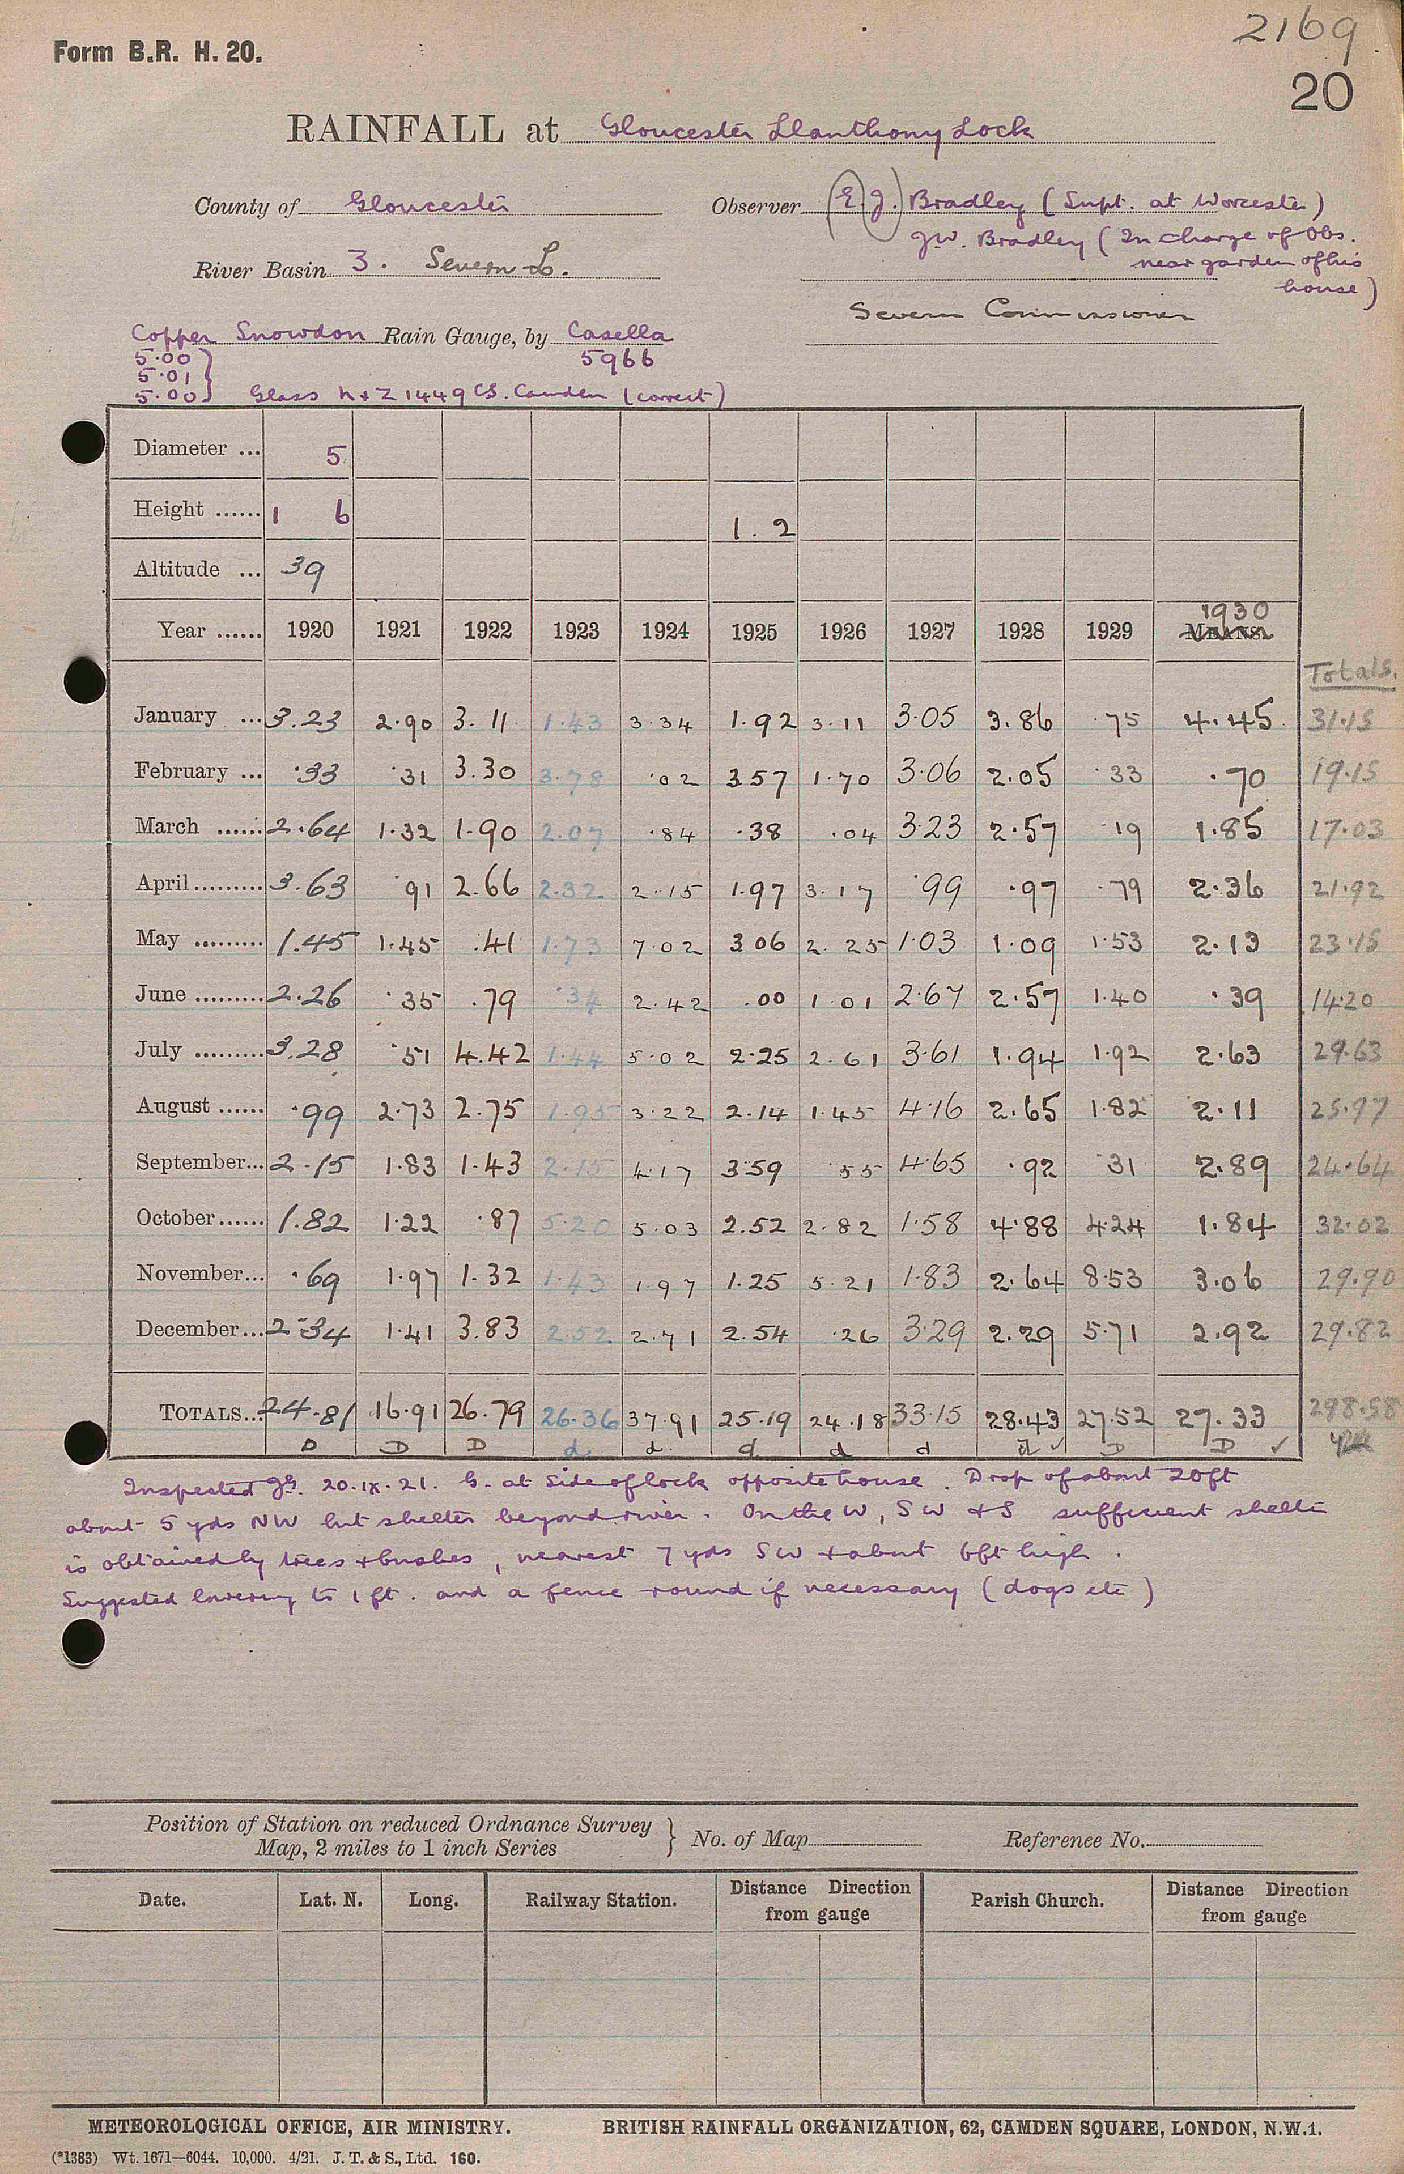 2169
Form B.R. H. 20.
20
RAINFALL at Gloucester Llanthony Lock
County of Gloucester Observer (E.J.) Bradley (Supt. at Worcester)
J.W. Bradley (In charge of Obs.
River Basin 3. Severn L. near garden of his
house)
Severn Commissioner
Copper Snowdon Rain Gauge, by Casella
5.00 } 5966
5.01
5.00 Glass N & Z 1449 CS. Camden (correct)
Diameter ... 5
Height ...... 1 6 1.2
Altitude ... 39
Year ...... 1920 1921 1922 1923 1924 1925 1926 1927 1928 1929 1930 MEANS.
Totals.
January ... 3.23 2.90 3.11 1.43 3.34 1.92 3.11 3.05 3.86 .75 4.45 31.15
February ... .33 .31 3.30 3.78 .02 3.57 1.70 3.06 2.05 .33 .70 19.15
March ...... 2.64 1.32 1.90 2.07 .84 .38 .04 3.23 2.57 .19 1.85 17.03
April ......... 3.63 .91 2.66 2.32 2.15 1.97 3.17 .99 .97 .79 2.36 21.92
May ......... 1.45 1.45 .41 1.73 7.02 3.06 2.25 1.03 1.09 1.53 2.13 23.15
June ......... 2.26 .35 .79 .34 2.42 .00 1.01 2.67 2.57 1.40 .39 14.20
July ......... 3.28 .51 4.42 1.44 5.02 2.25 2.61 3.61 1.94 1.92 2.63 29.63
August ...... .99 2.73 2.75 1.95 3.22 2.14 1.45 4.16 2.65 1.82 2.11 25.97
September... 2.15 1.83 1.43 2.15 4.17 3.59 .55 4.65 .92 .31 2.89 24.64
October ...... 1.82 1.22 .87 5.20 5.03 2.52 2.82 1.58 4.88 4.24 1.84 32.02
November... .69 1.97 1.32 1.43 1.97 1.25 5.21 1.83 2.64 8.53 3.06 29.90
December... 2.34 1.41 3.83 2.52 2.71 2.54 .26 3.29 2.29 5.71 2.92 29.82
TOTALS... 24.81 16.91 26.79 26.36 37.91 25.19 24.18 33.15 28.43 27.52 27.33 298.58
D D D d d d d d d ✓ D D ✓
Inspected JG. 20.IX.21. G. at side of lock opposite house. Drop of about 20ft
about 5 yds NW but shelter beyond river. On the W, SW & S sufficient shelter
is obtained by trees & bushes, nearest 7 yds SW & about 6ft high.
Suggested lowering to 1 ft. and a fence round if necessary (dogs etc)
Position of Station on reduced Ordnance Survey
Map, 2 miles to 1 inch Series } No. of Map Reference No.
Date. Lat. N. Long. Railway Station. Distance Direction from gauge Parish Church. Distance Direction from gauge
METEOROLOGICAL OFFICE, AIR MINISTRY. BRITISH RAINFALL ORGANIZATION, 62, CAMDEN SQUARE, LONDON, N.W.1.
(*1383) Wt. 1671—6044. 10,000. 4/21. J. T. & S., Ltd. 160.